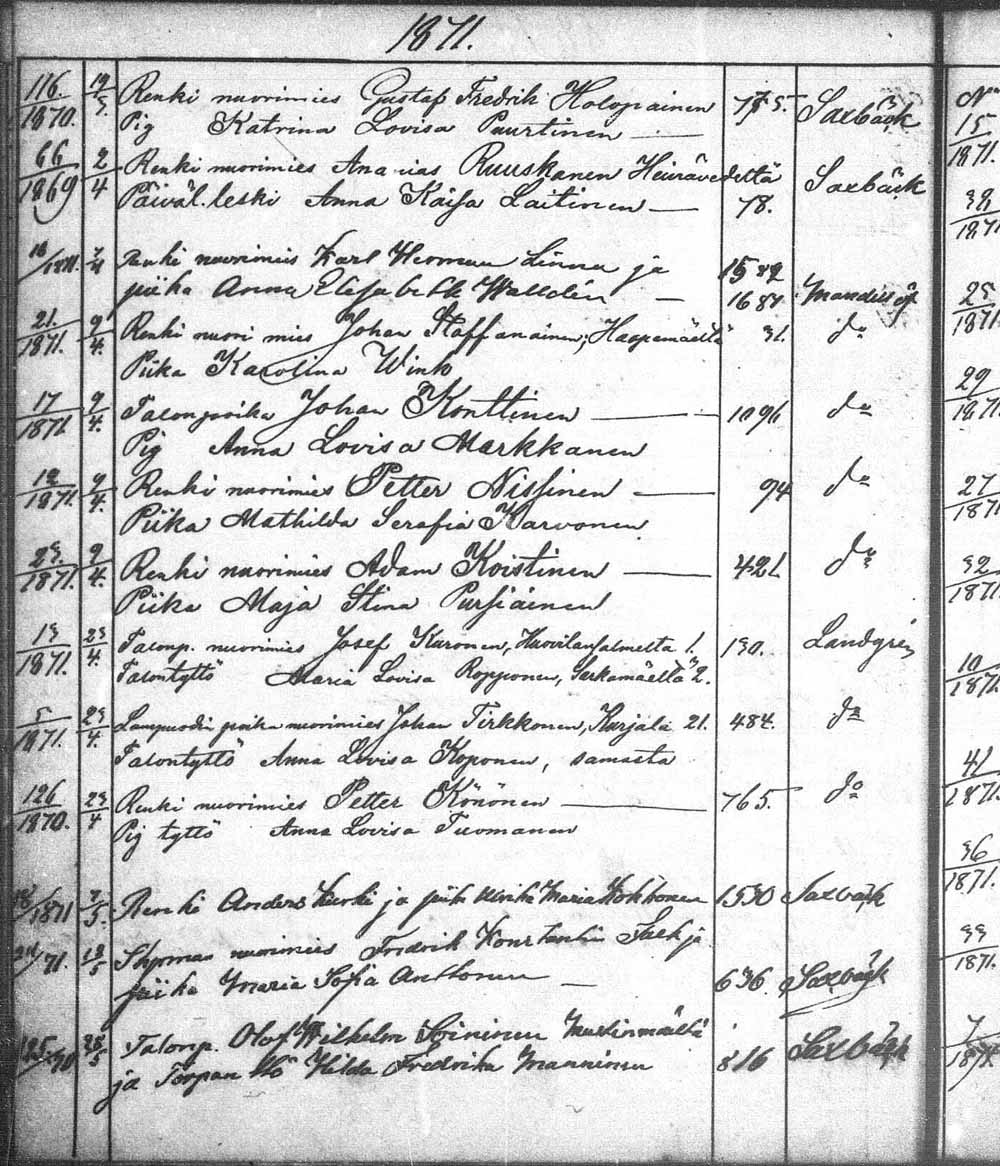 1871.
116. 19 Renki nuorimies Gustaf Fredrik Holopainen 785. Saxbäck
1870. 3. Pig Katrina Lovisa Puurtinen —
66 2 Renki nuorimies Ananias Ruuskanen Heinävedeltä Saxbäck
1869 4 Päiväl. leski Anna Kaisa Laitinen — 78.
16/1871. 7/4 Renki nuorimies Karl Herman Linna ja 1582
piika Anna Elisabeth Walldén — 1687. Mandellöf
21. 9 Renki nuorimies Johan Staffanainen, Haapamäeltä 31. do
1871. 4. Piika Karolina Wink
17 9 Talonpoika Johan Konttinen — 1096 do
1871 4. Pig Anna Lovisa Markkanen
12 9 Renki nuorimies Petter Nissinen — 94 do
1871. 4. Piika Mathilda Serafia Karvonen
23. 9 Renki nuorimies Adam Koistinen — 421. do
1871. 4. Piika Maja Stina Pursiainen
13 23 Talonp. nuorimies Josef Kuronen, 1. 130. Landgrén
1871. 4. Talontyttö Maria Lovisa Ropponen, Sarkamäeltä 2.
5 23 Lampuodin poika nuorimies Johan Tirkkonen, Kurjala 21. 484. do
1871. 4. Talontyttö Anna Lovisa Koponen, samasta
126 23 Renki nuorimies Petter Könönen — 765. do
1870. 4 Pig tyttö Anna Lovisa Tuomanen
18/1871 7/5. Renki Anders Kurki ja piik Ulrika Maria Kokkonen 1530 Saxbäck
/71. 18/5 nuorimies Fredrik Konstantin ja
piika Maria Sofia Anttonen — 636. Saxbäck
125/70 28/5 Talonp. Olof Wilhelm Soininen Mustinmäeltä
ja Torpan ttö Hilda Fredrika Manninen 816 Saxbäck
No
15
1871.
32
1871
25
1871.
29
1871
27
1871
32
1871.
10
1871.
41
1871.
36
1871.
33
1871.
7
1871